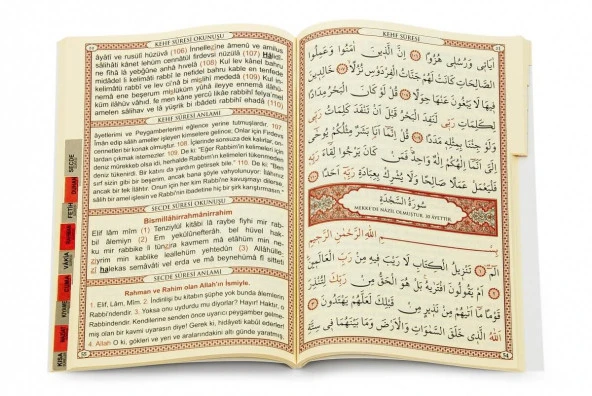 KEHF SÛRESİ OKUNUŞU
âyâtî ve rusulî hüzüvâ (107) İnnellezîne âmenû ve amilus
sâlihâti kânet lehüm cennâtül firdevsi nüzülâ (107) Hâlidî-
ne fîhâ lâ yebğûne anhâ hıvelâ (108) Kul lev kânel bahru
midâdel li kelimâti rabbî le nefidel bahru kable en tenfede
kelimâtü rabbî ve lev ci'nâ bi mislihî mededâ (109) Kul in-
nemâ ene beşerum mislüküm yûhâ ileyye ennemâ ilâhü-
küm ilâhüv vâhid. fe men kâne yercû likâe rabbihî felya'mel
amelen sâlihav ve lâ yüşrik bi ıbâdeti rabbihî ehadâ (110)
KEHF SÛRESİ ANLAMI
âyetlerimi ve Peygamberlerimi eğlence yerine tutmuşlardır. 107.
İman edip sâlih ameller işleyen kimselere gelince; Onlar için Firdevs
cennetleri bir konak olmuştur. 108. İçlerinde sonsuza dek kalırlar, on-
lardan çıkmak istemezler. 109. De ki: "Eğer Rabbım'ın kelimeleri için
deniz mürekkeb olsa idi, herhalde Rabbım'ın kelimeleri tükenmeden
deniz tükenirdi. Bir katını da yardım getirsek bile." 110. De ki: "Ben
sırf sizin gibi bir beşerim, ancak bana şöyle vahyolunuyor: İlâhınız
ancak bir tek İlâhtır. Onun için her kim Rabbi'ne kavuşmayı dilerse,
SECDE SÛRESİ OKUNUŞU
Bismillâhirrahmânirrahîm
Elif lâm mîm (1) Tenzîlül kitâbi lâ raybe fîyhi mir rab-
bil âlemîyn (2) Em yekûlûnefterâh. bel hüvel hak-
ku mir rabbike li tünzira kavmem mâ etâhüm min ne-
zîyrim min kablike leallehüm yehtedûn (3) Allâhülle-
zîy halekas semâvâti vel erda ve mâ beynehümâ fî sitteti
SECDE SÛRESİ ANLAMI
Rahman ve Rahim olan Allah'ın İsmiyle.
1. Elif, Lâm, Mîm. 2. İndirilişi bu kitabın şüphe yok bunda âlemlerin
Rabbi'ndendir. 3. Yoksa onu uydurdu mu diyorlar? Hayır! Haktır, o
Rabbindendir. Kendilerine senden önce uyarıcı peygamber gelme-
miş olan bir kavmi uyarasın diye! Gerek ki, hidâyeti kabûl ederler!
4. Allah O ki, gökleri ve yeri ve aralarındakini altı günde yaratmış,
SECDE
DUHAN
FETİH
VÂKIA
CUMA
KIYAME
KISA
KEHF SÛRESİ
اٰيَاتٖى وَرُسُلٖى هُزُوًا اِنَّ الَّذٖينَ اٰمَنُوا وَعَمِلُوا
الصَّالِحَاتِ كَانَتْ لَهُمْ جَنَّاتُ الْفِرْدَوْسِ نُزُلًا خَالِدٖينَ
فٖيهَا لَا يَبْغُونَ عَنْهَا حِوَلًا قُلْ لَوْ كَانَ الْبَحْرُ مِدَادًا
لِكَلِمَاتِ رَبّٖى لَنَفِدَ الْبَحْرُ قَبْلَ اَنْ تَنْفَدَ كَلِمَاتُ رَبّٖى
وَلَوْ جِئْنَا بِمِثْلِهٖ مَدَدًا قُلْ اِنَّمَا اَنَا بَشَرٌ مِثْلُكُمْ يُوحٰى
اِلَىَّ اَنَّمَا اِلٰهُكُمْ اِلٰهٌ وَاحِدٌ فَمَنْ كَانَ يَرْجُوا لِقَاءَ رَبِّهٖ
فَلْيَعْمَلْ عَمَلًا صَالِحًا وَلَا يُشْرِكْ بِعِبَادَةِ رَبِّهٖ اَحَدًا
سُورَةُ السَّجْدَةِ
MEKKE'DE NÂZİL OLMUŞTUR. 30 ÂYETTİR.
بِسْمِ اللّٰهِ الرَّحْمٰنِ الرَّحٖيمِ
الٓمٓ تَنْزٖيلُ الْكِتَابِ لَا رَيْبَ فٖيهِ مِنْ رَبِّ الْعَالَمٖينَ
اَمْ يَقُولُونَ افْتَرٰيهُ بَلْ هُوَ الْحَقُّ مِنْ رَبِّكَ لِتُنْذِرَ
قَوْمًا مَا اَتٰيهُمْ مِنْ نَذٖيرٍ مِنْ قَبْلِكَ لَعَلَّهُمْ يَهْتَدُونَ
اَللّٰهُ الَّذٖى خَلَقَ السَّمٰوَاتِ وَالْاَرْضَ وَمَا بَيْنَهُمَا فٖى سِتَّةِ